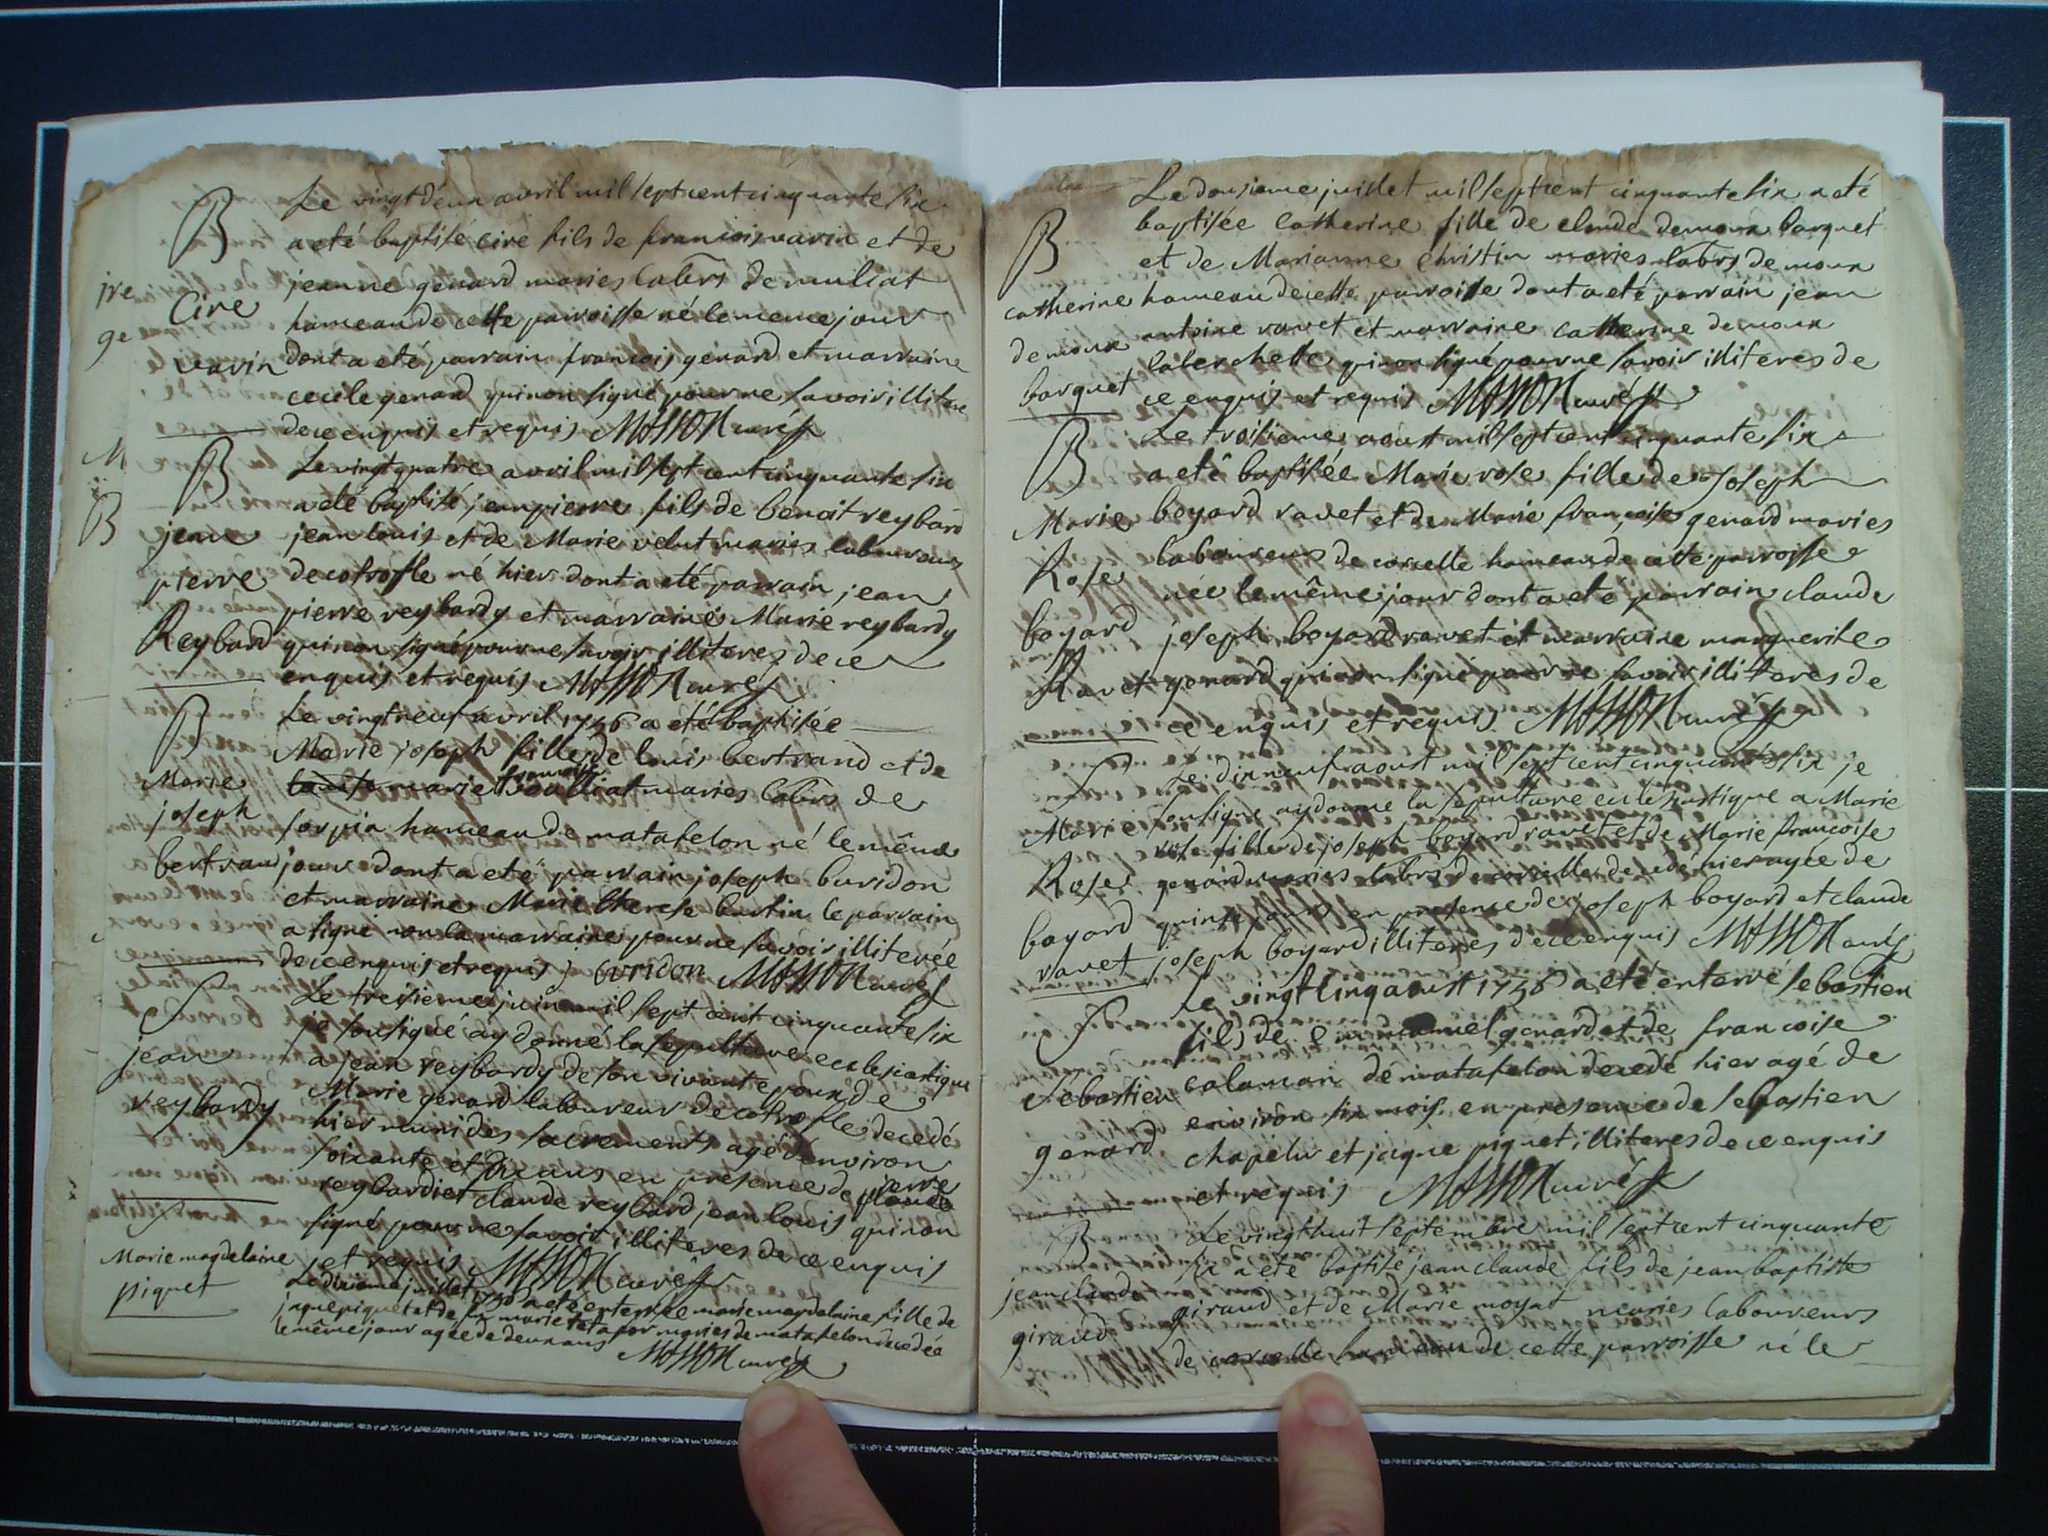 B
Le vingt deux avril mil sept cent cinquante six
a eté baptisé cire fils de francois varin et de
jeanne genard maries labrs de muliat
Cire
hameau de cette parroisse né le meme jour
varin
dont a eté parrain francois genard et marraine
cecile genard qui non signé pour ne savoir illitere
de ce enquis et requis MASSON curé
B
Le vingt quatre avril mil sept cent cinquante six
a eté baptisé jean pierre fils de benoit reybard
jean
jean louis et de Marie velut maries laboureurs
pierre
de cotrofle né hier dont a eté parrain jean
pierre reybardy et marraine Marie reybardy
Reybard
qui non signé pour ne savoir illiteres de ce
enquis et requis MASSON curé
B
Le vingt neuf avril 1756 a eté baptisée
Marie joseph fille de louis bertrand et de
Marie
marie maries labrs de
joseph
sorpia hameau de matafelon né le même
bertrand
jour dont a eté parrain joseph buridon
et marraine Marie therese bertin le parrain
a signé non la marraine pour ne savoir illiterée
de ce enquis et requis j buridon MASSON curé
S
Le treisieme juin mil sept cent cinquante six
je sousigné ay donné la sepulture eclesiastique
jean
a jean reybardy de son vivant epoux de
reybardy
Marie genard laboureur de cotrofle decedé
hier muni des sacrements agé denviron
soixante et dix ans en presence de pierre
reybardi et claude reybard jean louis qui non
signé pour ne savoir illiteres de ce enquis
et requis MASSON curé
Marie magdelaine
piquet
Le dixieme juillet 1756 a eté enterrée marie magdelaine fille de
jaque piquet et de marie tatafor maries de matafelon decedée
le même jour agée de deux ans MASSON curé
B
Le dousieme juillet mil sept cent cinquante six a eté
baptisée Catherine fille de claude demoux barquet
et de Marianne Christin maries labrs de moux
catherine
hameau de cette parroisse dont a eté parrain jean
demoux
antoine ravet et marraine catherine demoux
barquet
laberchette qui non signé pour ne savoir illiteres de
ce enquis et requis MASSON curé
B
Le troisieme aoust mil sept cent cinquante six
a eté baptisée Marie rose fille de Joseph
Marie
boyard ravet et de Marie françoise genard maries
Rose
laboureurs de corcelle hameau de cette parroisse
née le même jour dont a eté parrain claude
boyard
joseph boyard ravet et marraine marguerite
Ravet
genard qui non signé pour ne savoir illiteres de
ce enquis et requis MASSON curé
S
Le dix neuf aoust mil sept cent cinquante six je
sousigné ay donné la sepulture eclesiastique a Marie
Marie
rose fille de joseph boyard ravet et de Marie francoise
Rose
genard maries labrs de corcelle decedé hier agée de
boyard
quinse jours en presence de joseph boyard et claude
ravet
joseph boyard illiteres de ce enquis MASSON curé
S
Le vingt cinq aoust 1756 a eté enterré sebastien
fils de emanuel genard et de francoise
Sebastien
calaman de matafelon decedé hier agé de
environ six mois en presence de sebastien
genard
chapelu et jaque piquet illiteres de ce enquis
et requis MASSON curé
B
Le vingt huit septembre mil sept cent cinquante
six a eté baptisé jean claude fils de jean baptiste
jean claude
giraud et de Marie moyat maries laboureurs
giraud
de corcelle hameau de cette parroisse né le